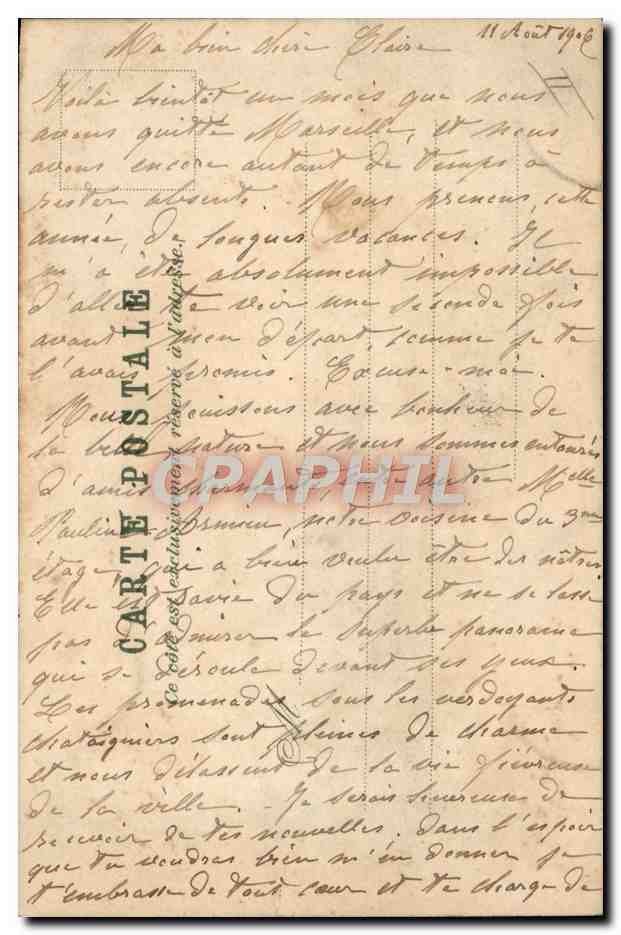 11 Août 1906
Ma bien chère Claire
Voilà bientôt un mois que nous
avons quitté Marseille, et nous
avons encore autant de temps à
rester absents. Nous prenons, cette
année, de longues vacances. Il
m'a été absolument impossible
d'aller te voir une seconde fois
avant mon départ, comme je te
l'avais promis. Excuse-moi.
Nous jouissons avec bonheur de
la belle nature et nous sommes entourés
d'amis charmants, entre autre Melle
Pauline, notre voisine du 3me
étage qui a bien voulu être des nôtres
Elle est ravie du pays et ne se lasse
pas d'admirer le superbe panorama
qui se déroule devant ses yeux.
Les promenades sous les verdoyants
chataigniers sont pleines de charme
et nous délassent de la vie fiévreuse
de la ville. Je serais heureuse de
recevoir de tes nouvelles. Dans l'espoir
que tu voudras bien m'en donner je
t'embrasse de tout cœur et te charge de
CARTE POSTALE
Ce côté est exclusivement réservé à l'adresse.
M
CARTE GRAPHIL